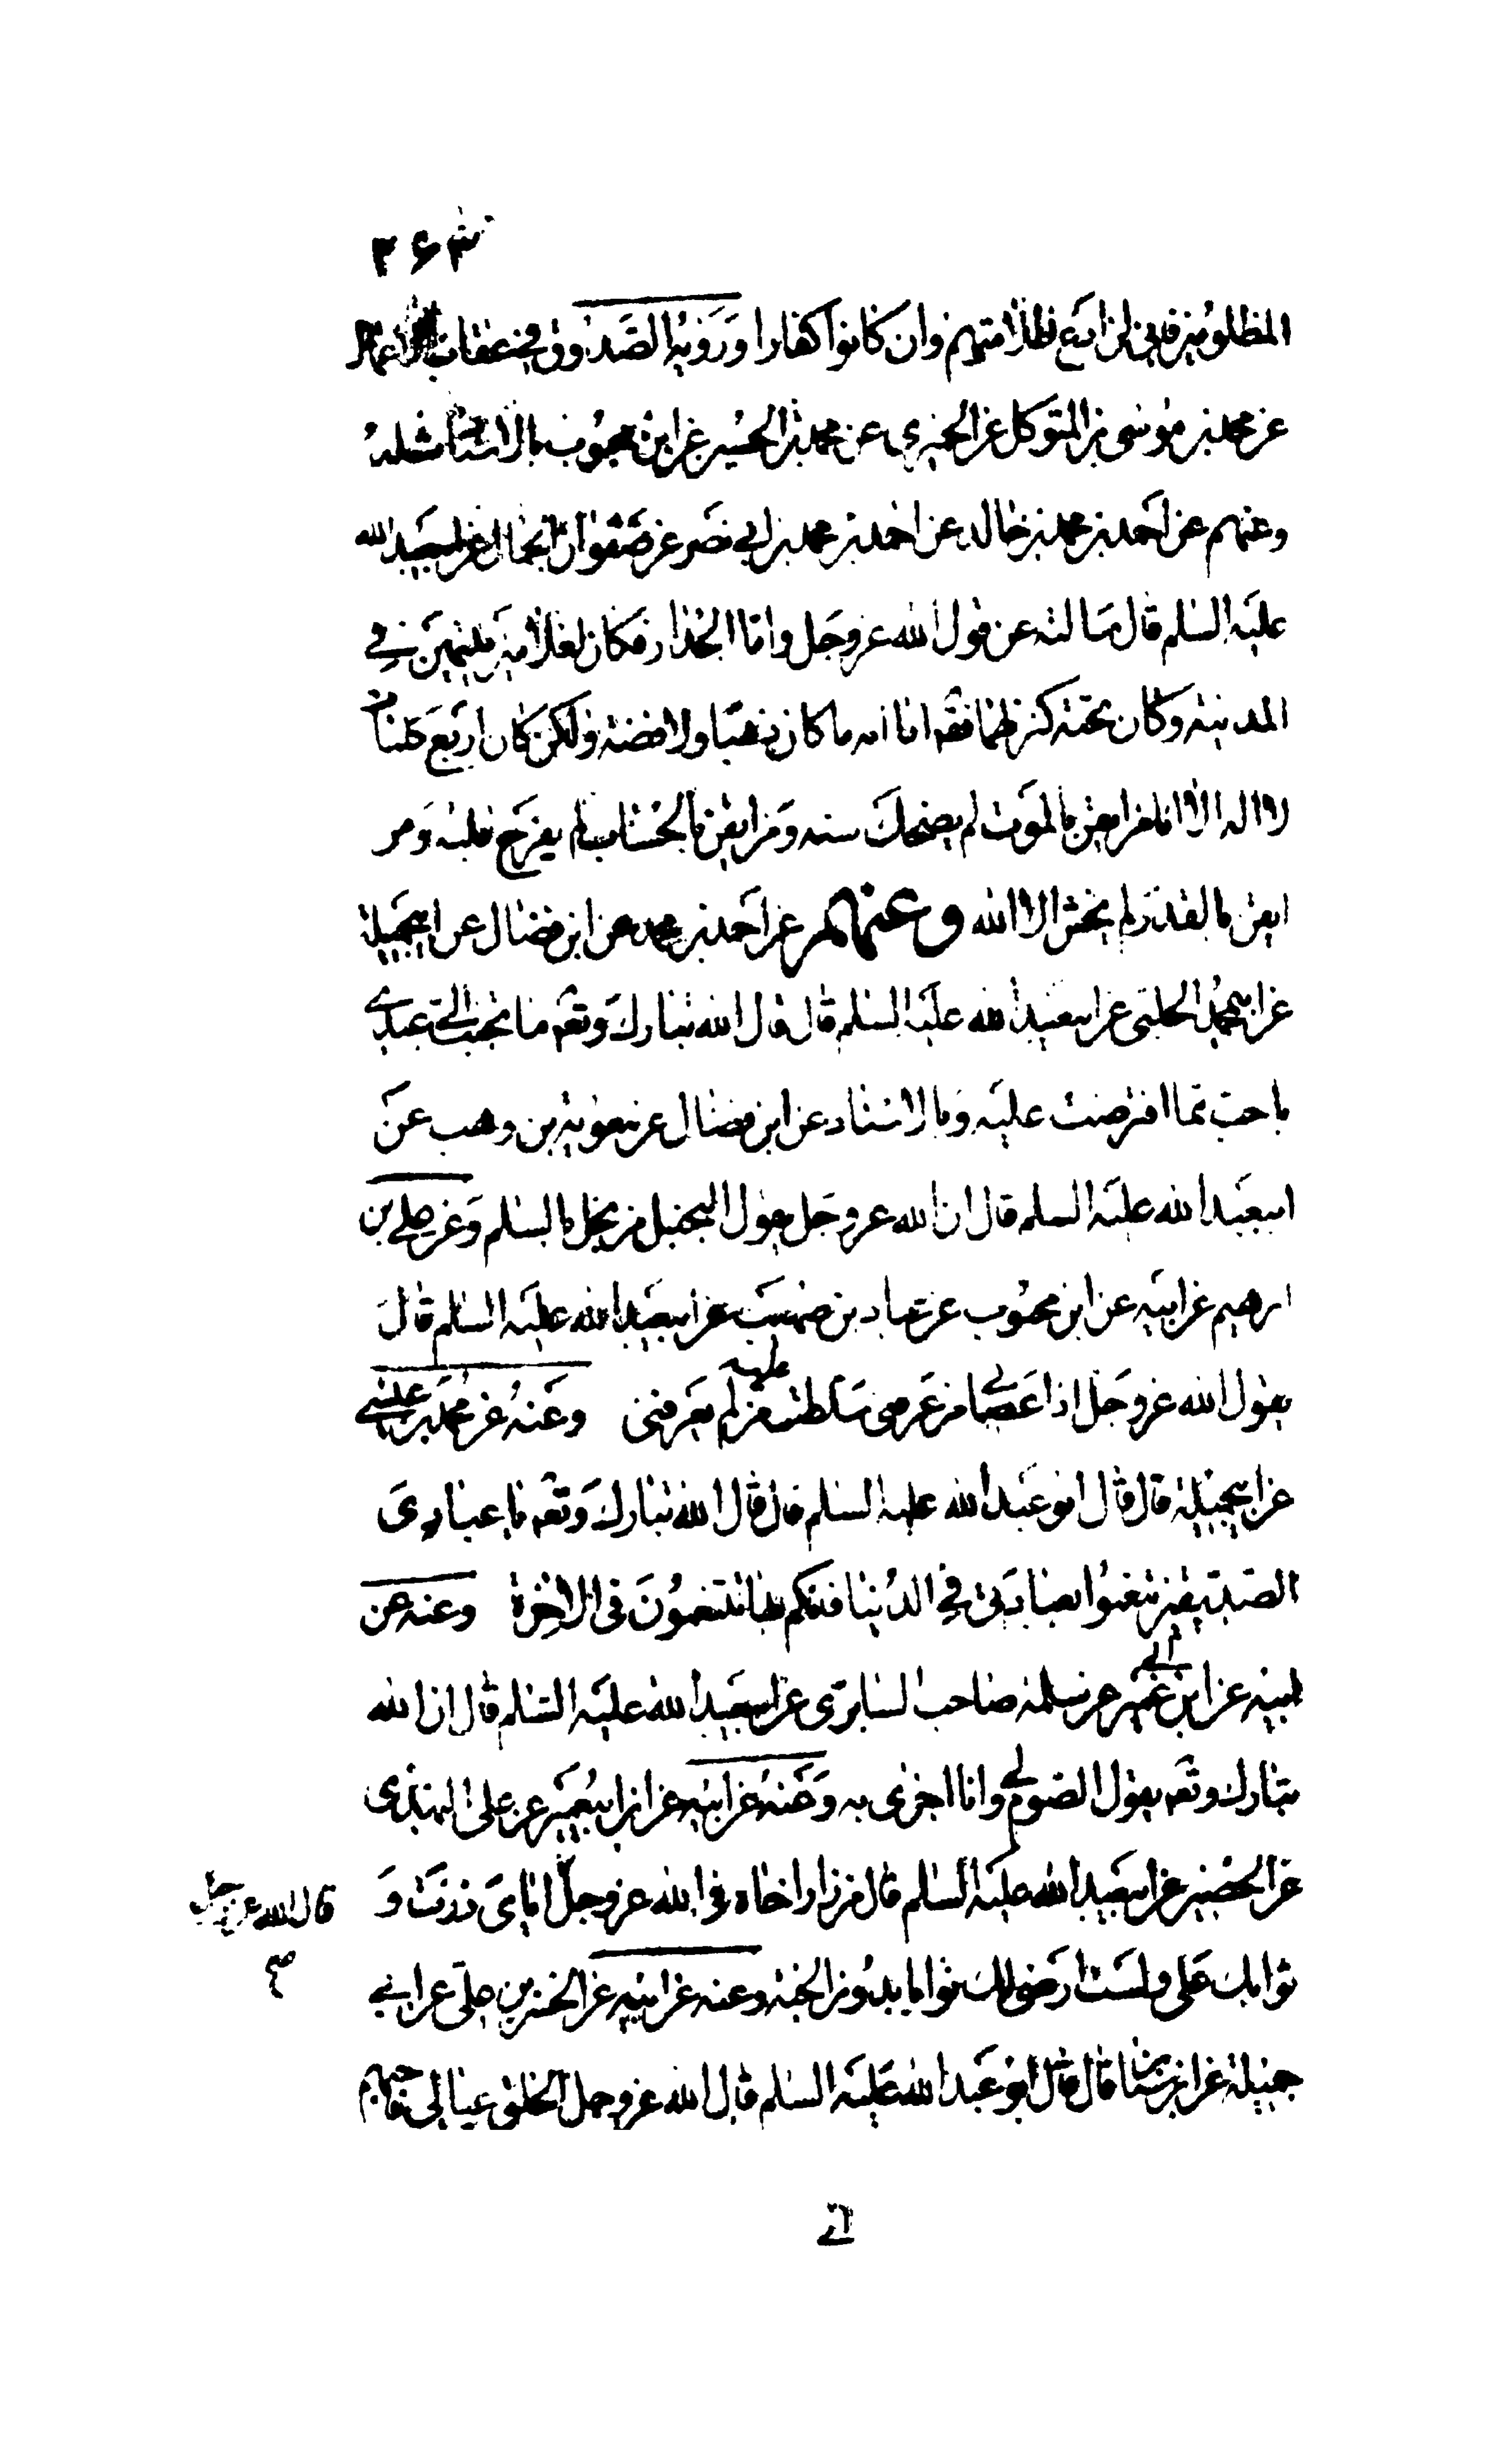 ٣۶٣
المظلومين فاني لن ادع ظلامتهم وان كانوا كفارا ورويه الصدوق في عقاب الاعمال
عن محمد بن موسى بن المتوكل عن الحميري عن محمد بن الحسين عن ابن محبوب بالاسناد مثله
وعنهم عن احمد بن محمد بن خالد عن احمد بن محمد بن ابي نصر عن صفوان الجمال عن ابيعبد الله
عليه السلم قال سالته عن قول الله عز وجل واما الجدار فكان لغلامين يتيمين في
المدينة وكان تحته كنز لهما فقه اما انه ما كان ذهبا ولا فضة ولكن كان اربع كلمات
لا اله الا انا من ايقن بالموت لم يضحك سنه ومن ايقن بالحساب لم يفرح قلبه ومن
ايقن بالقدر لم يخش الا الله وعنهم عن احمد بن محمد عن ابن فضال عن ابيجميلة
عن محمد الحلبي عن ابيعبد الله عليه السلم قال قال الله تبارك وتعه ما تحبب الي عبدي
باحب مما افترضت عليه وبالاسناد عن ابن فضال عن معوية بن وهب عن
ابيعبد الله عليه السلم قال ان الله عز وجل يقول البخيل من يبخل بالسلم وعن علي بن
ابرهيم عن ابيه عن ابن محبوب عن عباد بن صهيب عن ابيعبد الله عليه السلم قال
يقول الله عز وجل اذا عصاني من عرفني سلطت عليه من لم يعرفني وعنه عن محمد بن عيسى
عن ابيجميلة قال قال ابو عبد الله عليه السلم قال قال الله تبارك وتعه يا عبادي
الصديقين تنعموا بعبادتي في الدنيا فانكم بها تتنعمون في الاخرة وعنه عن
ابيه عن ابن ابي عمير عن سلمة صاحب السابري عن ابيعبد الله عليه السلم قال ان الله
تبارك وتعه يقول الصوم لي وانا اجزى به وعنه عن ابيه عن ابن ابيعمير عن علي النهدي
عن الحصين عن ابيعبد الله عليه السلم قال من زار اخاه في الله عز وجل اياي زرت و
قال الله عز وجل
صح
ثوابك علي ولست ارضى لك ثوابا بدون الجنة وعنه عن ابيه عن الحسن بن علي عن ابي
جميلة عن ابن سنان قال قال ابو عبد الله عليه السلم قال الله عز وجل الخلق عيالي فاحبهم